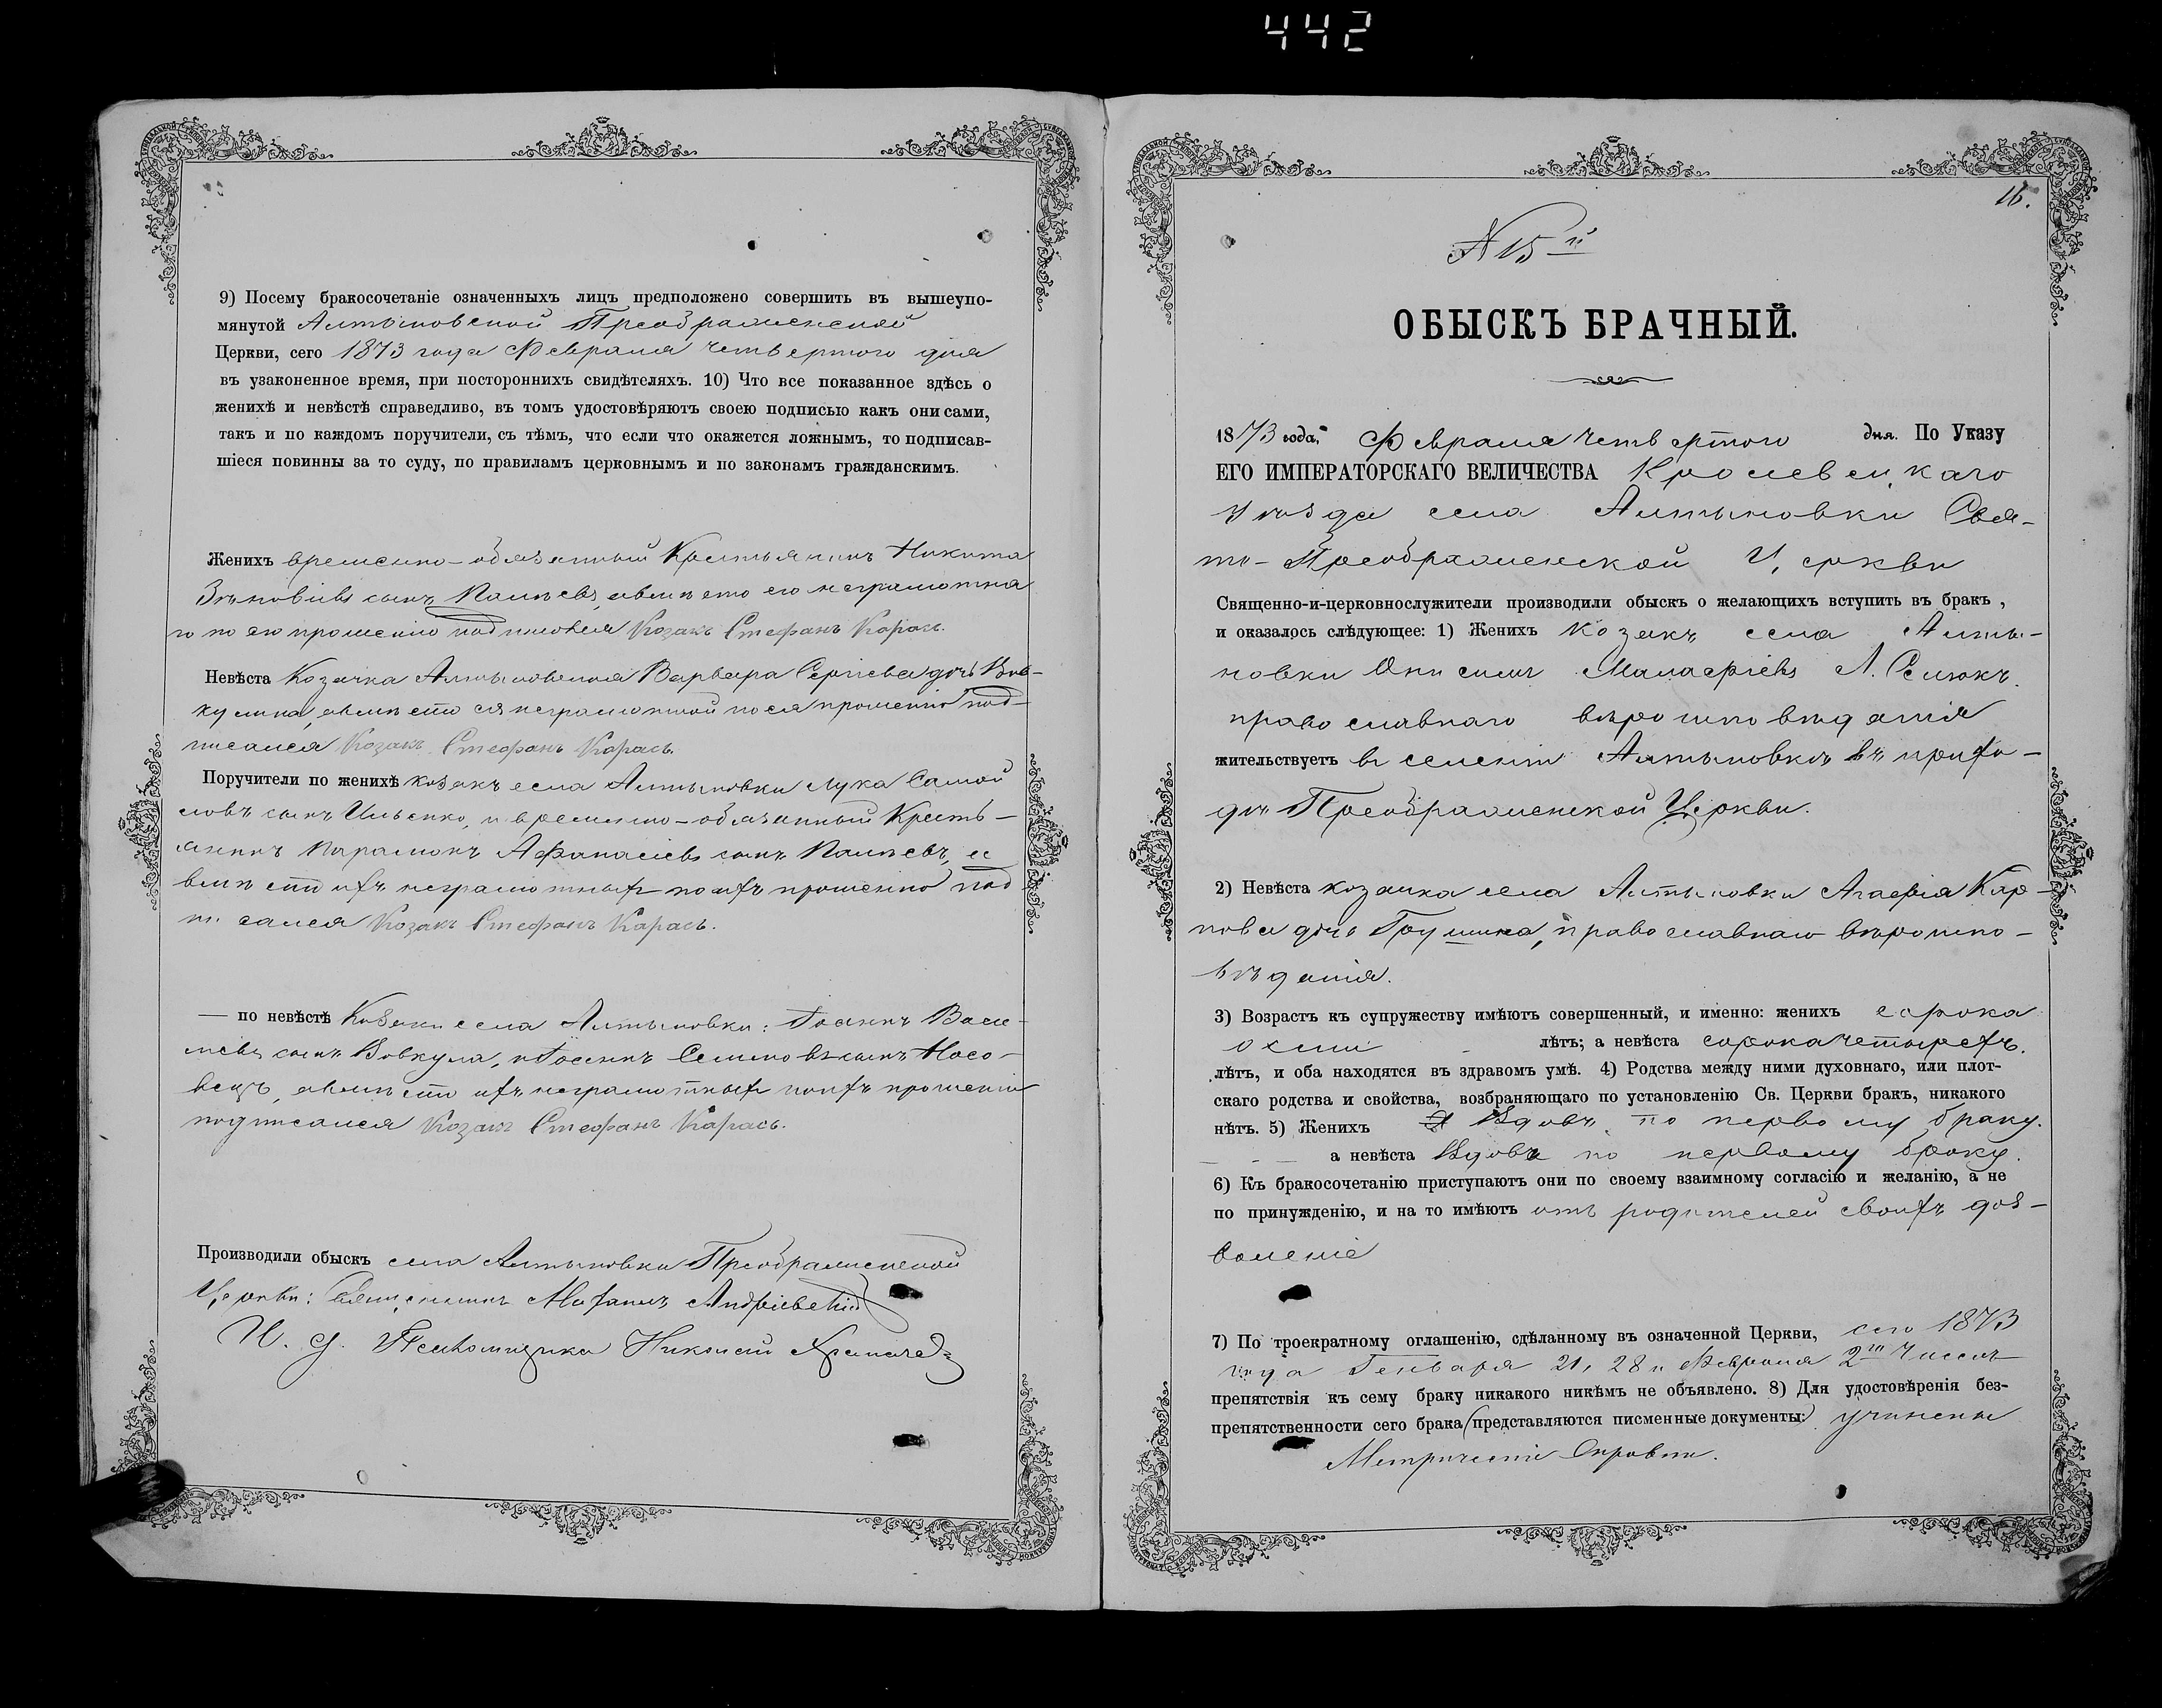 442
9) Посему бракосочетаніе означенныхъ лицъ предположено совершить въ вышеупо-
мянутой Алтыновской Преображенской
Церкви, сего 1873 года Февраля четвертого дня
въ узаконенное время, при постороннихъ свидѣтеляхъ. 10) Что все показанное здѣсь о
женихѣ и невѣстѣ справедливо, въ томъ удостовѣряютъ своею подписью какъ они сами,
такъ и по каждомъ поручители, съ тѣмъ, что если что окажется ложнымъ, то подписав-
шіеся повинны за то суду, по правиламъ церковнымъ и по законамъ гражданскимъ.
Женихъ временно-обязанный Крестьянинъ Никита
Зѣновіевъ сынъ, авмѣсто его неграмотна
го по его прошенію подписался Козакъ Стефанъ Карась.
Невѣста Козачка Алтыновская Варвара Сергіева дочь Вов-
кулина, авмѣсто ея неграмотной по ея прошенію под-
писался Козакъ Стефанъ Карась.
Поручители по женихѣ козакъ села Алтыновки Лука Самой
ловъ сынъ Ильенко, и временно-обязанный Кресть-
янинъ Парамонъ Афанасіевъ сынъ, а
вмѣсто ихъ неграмотныхъ по ихъ прошенію под
писался Козакъ Стефанъ Карась.
— по невѣстѣ Козаки села Алтыновки: Іоаннъ Васи-
ліевъ сынъ Вовкула, и Іоаннъ Семеновъ сынъ Носо-
вецъ, авмѣсто ихъ неграмотныхъ поихъ прошенію
подписался Козакъ Стефанъ Карась.
Производили обыскъ села Алтыновки Преображенской
Церкви: Священникъ Андріевскій
И. д. Псаломщика Николай
16.
N 15й
ОБЫСКЪ БРАЧНЫЙ.
1873 года, Февраля четвертого дня. По Указу
ЕГО ИМПЕРАТОРСКАГО ВЕЛИЧЕСТВА Кролевецкаго
уѣзда села Алтыновки Свя-
то-Преображенской Церкви
Священно-и-церковнослужители производили обыскъ о желающихъ вступить въ бракъ,
и оказалось слѣдующее: 1) Женихъ Козакъ села Алты-
новки Онисимъ
православнаго вѣроисповѣданія
жительствуетъ в селеніи Алтыновкѣ въ прихо-
дѣ Преображенской Церкви.
2) Невѣста козачка села Алтыновки Агафія Кар-
пова дочь, православнаго вѣроиспо-
вѣданія.
3) Возрастъ къ супружеству имѣютъ совершенный, и именно: женихъ сорока
осми лѣтъ; а невѣста сорока четырехъ.
лѣтъ, и оба находятся въ здравомъ умѣ. 4) Родства между ними духовнаго, или плот-
скаго родства и свойства, возбраняющаго по установленію Св. Церкви бракъ, никакого
нѣтъ. 5) Женихъ Вдовъ по первому браку.
а невѣста Вдова по первому браку.
6) Къ бракосочетанію приступаютъ они по своему взаимному согласію и желанію, а не
по принужденію, и на то имѣютъ отъ родителей своихъ доз-
воленіе
7) По троекратному оглашенію, сдѣланному въ означенной Церкви, сего 1873
года Генваря 21, 28 и Февраля 2го Числъ
препятствія къ сему браку никакого никѣмъ не объявлено. 8) Для удостовѣренія без-
препятственности сего брака (представляются писменные документы:) учинены
Метрическіе Справки.